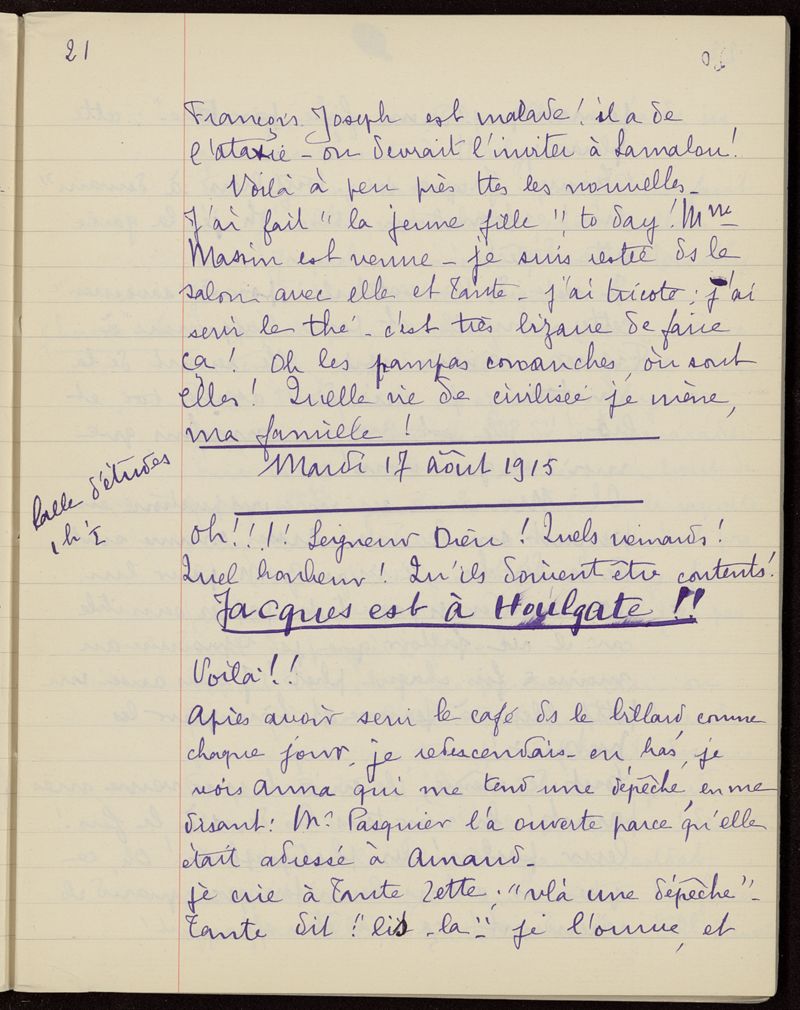 21
François Joseph est malade! il a de
l'ataxie - on devrait l'inviter à Lamalou!
Voilà à peu près ttes les nouvelles -
J'ai fait "la jeune fille" to day! Mme
Massin est venue - je suis restée ds le
salon avec elle et Tante - j'ai tricoté; j'ai
servi le thé - c'est très bizarre de faire
ça! Oh les pampas comanches, où sont
elles! Quelle vie de civilisée je mène,
ma famille!
Mardi 17 Août 1915
Salle d'études
1h
Oh!!!! Seigneur Dieu! Quels veinards!
Quel bonheur! Qu'ils doivent être contents!
Jacques est à Houlgate!!
Voilà!!
Après avoir servi le café ds le billard comme
chaque jour, je redescendais en bas, je
vois Anna qui me tend une dépêche, en me
disant: Mr Pasquier l'a ouverte parce qu'elle
était adressé à Arnaud -
je crie à Tante Zette; "vlà une dépêche" -
Tante dit: "lis-la" je l'ouvre, et